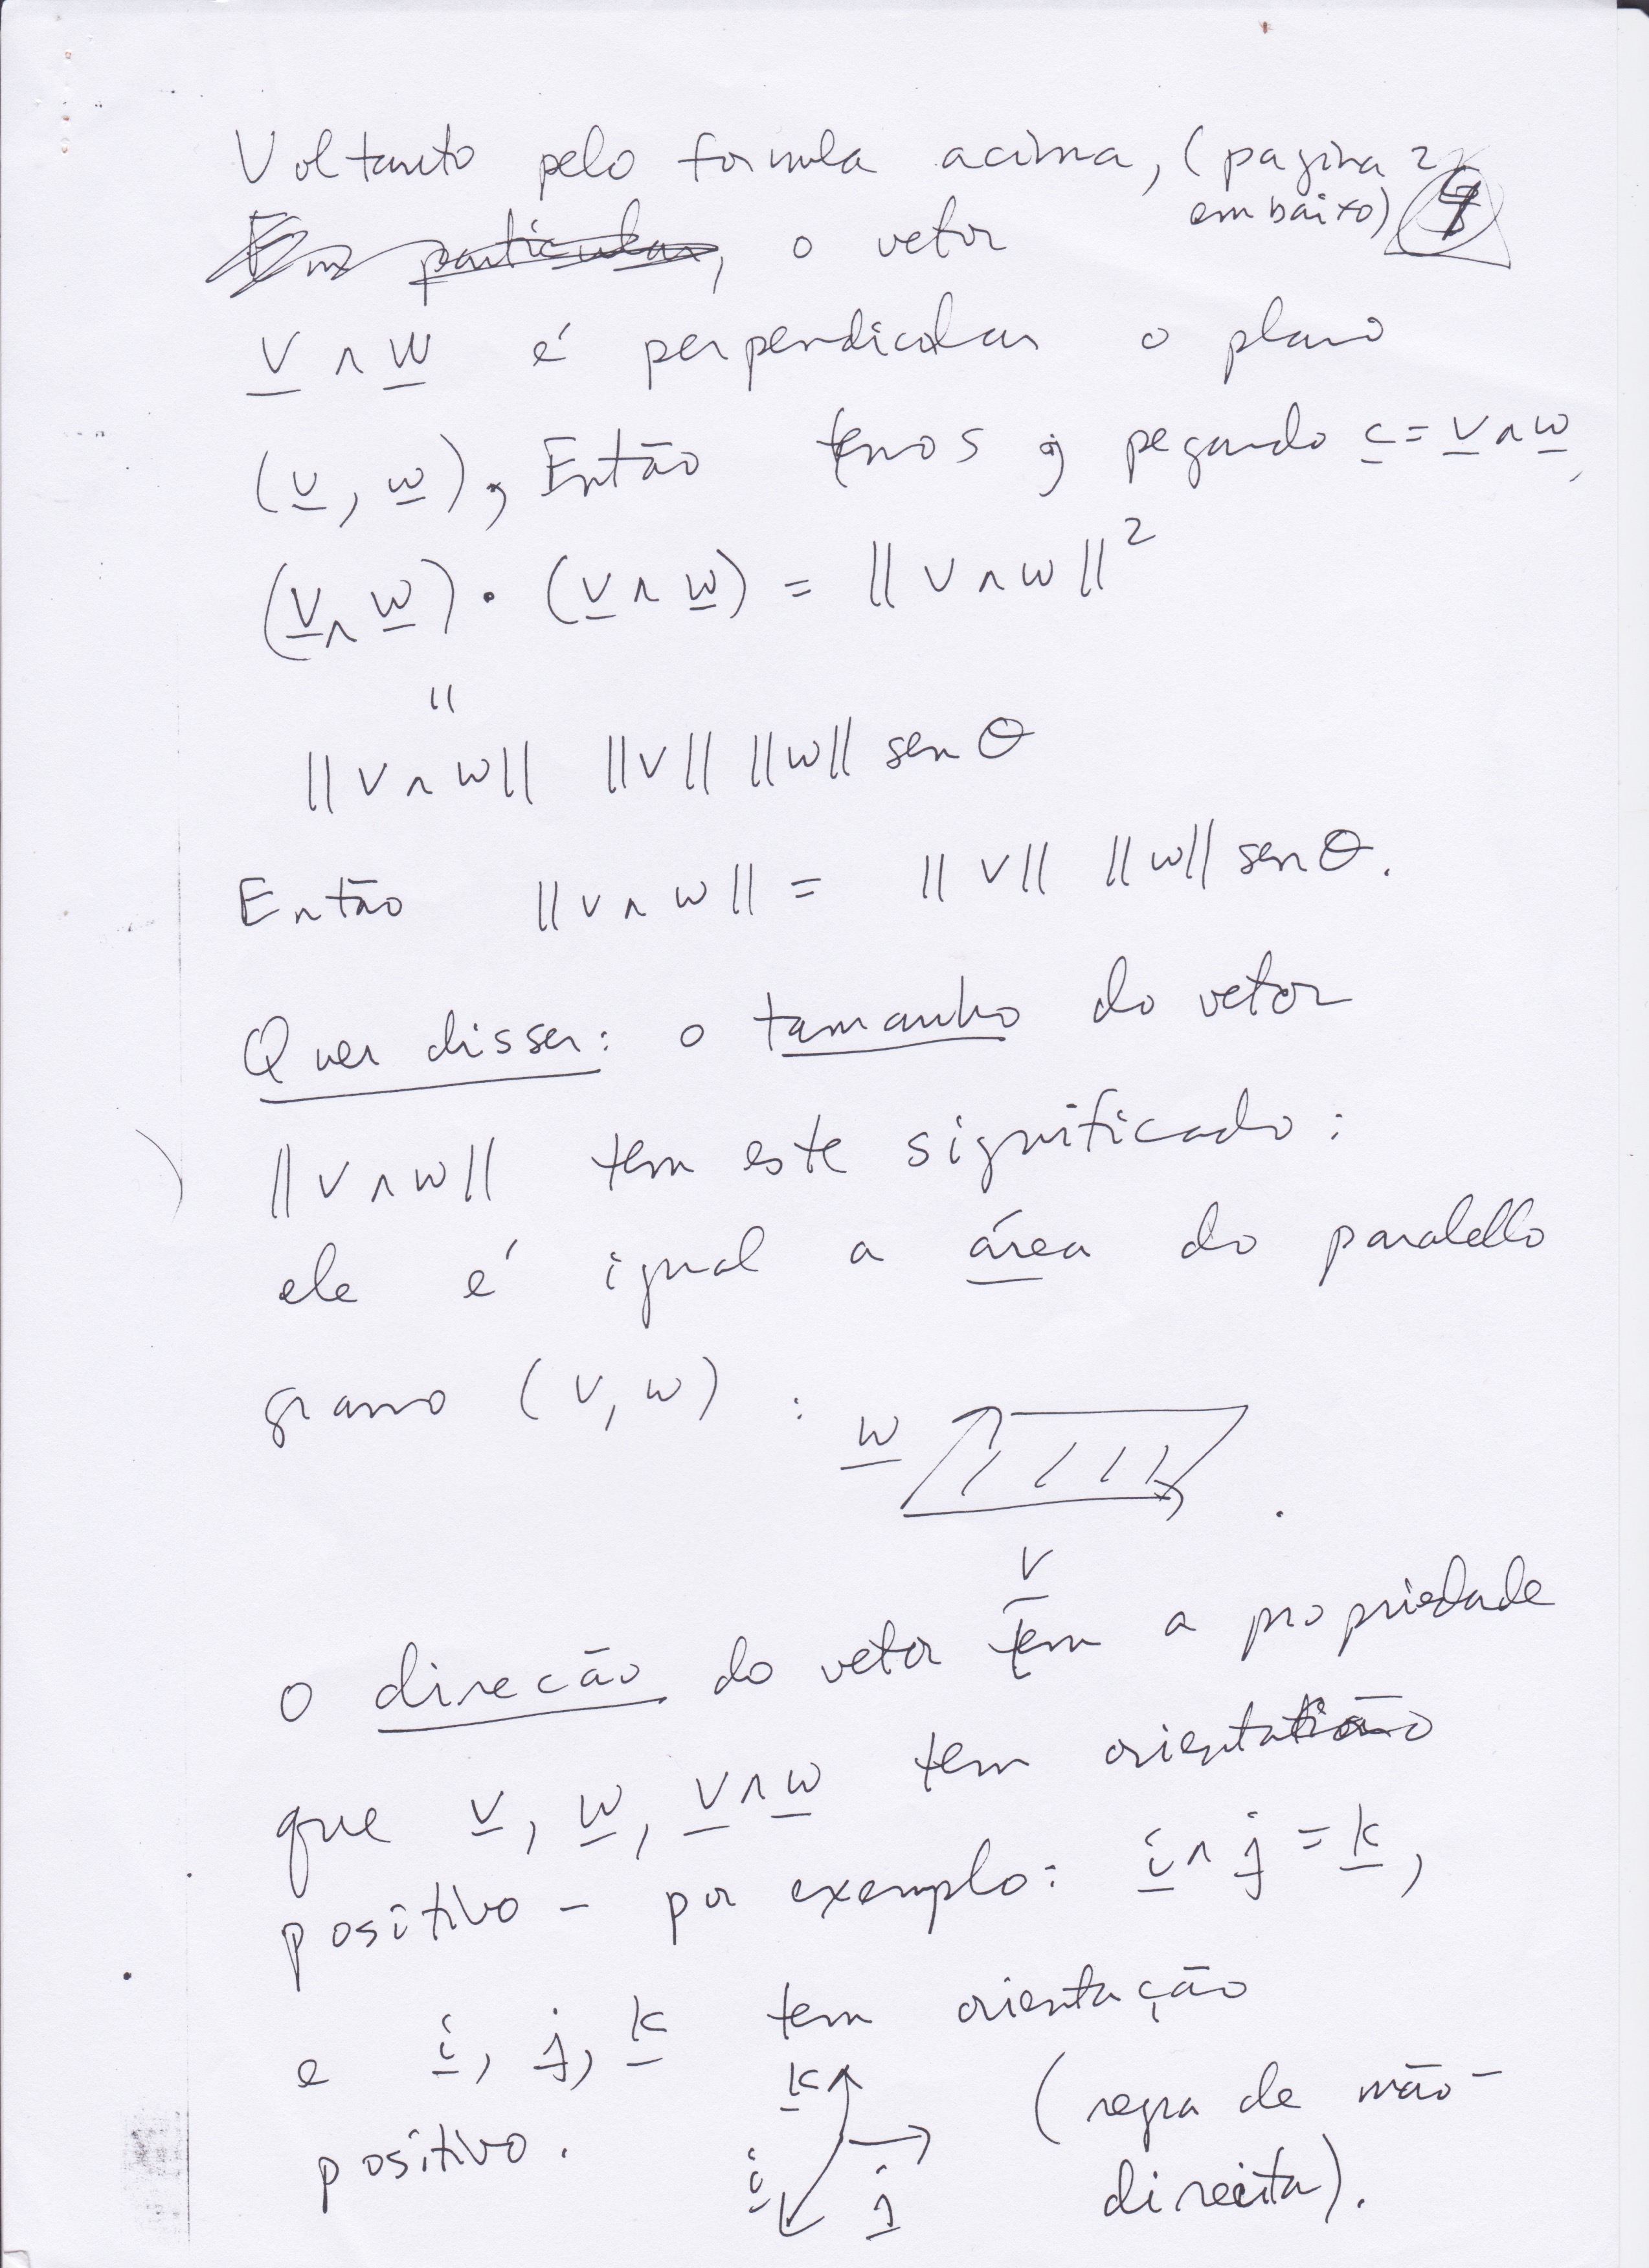 Voltanto pelo formula acima, (pagina 2
embaixo) 4
Em particular, o vetor
v ∧ w é perpendicolar o plano
(v, w), Então temos, pegando c = v ∧ w,
(v ∧ w) · (v ∧ w) = ||v ∧ w||²
"
||v ∧ w|| ||v|| ||w|| sen θ
Então ||v ∧ w|| = ||v|| ||w|| sen θ.
Quer disser: o tamanho do vetor
||v ∧ w|| tem este significado:
ele é igual a área do paralello
gramo (v, w) :
w
v
O direcão do vetor tem a propriedade
que v, w, v ∧ w tem orientatião
positivo – por exemplo: i ∧ j = k,
e i, j, k tem orientação
positivo.
k
i
j
(regra de mão-
direita).